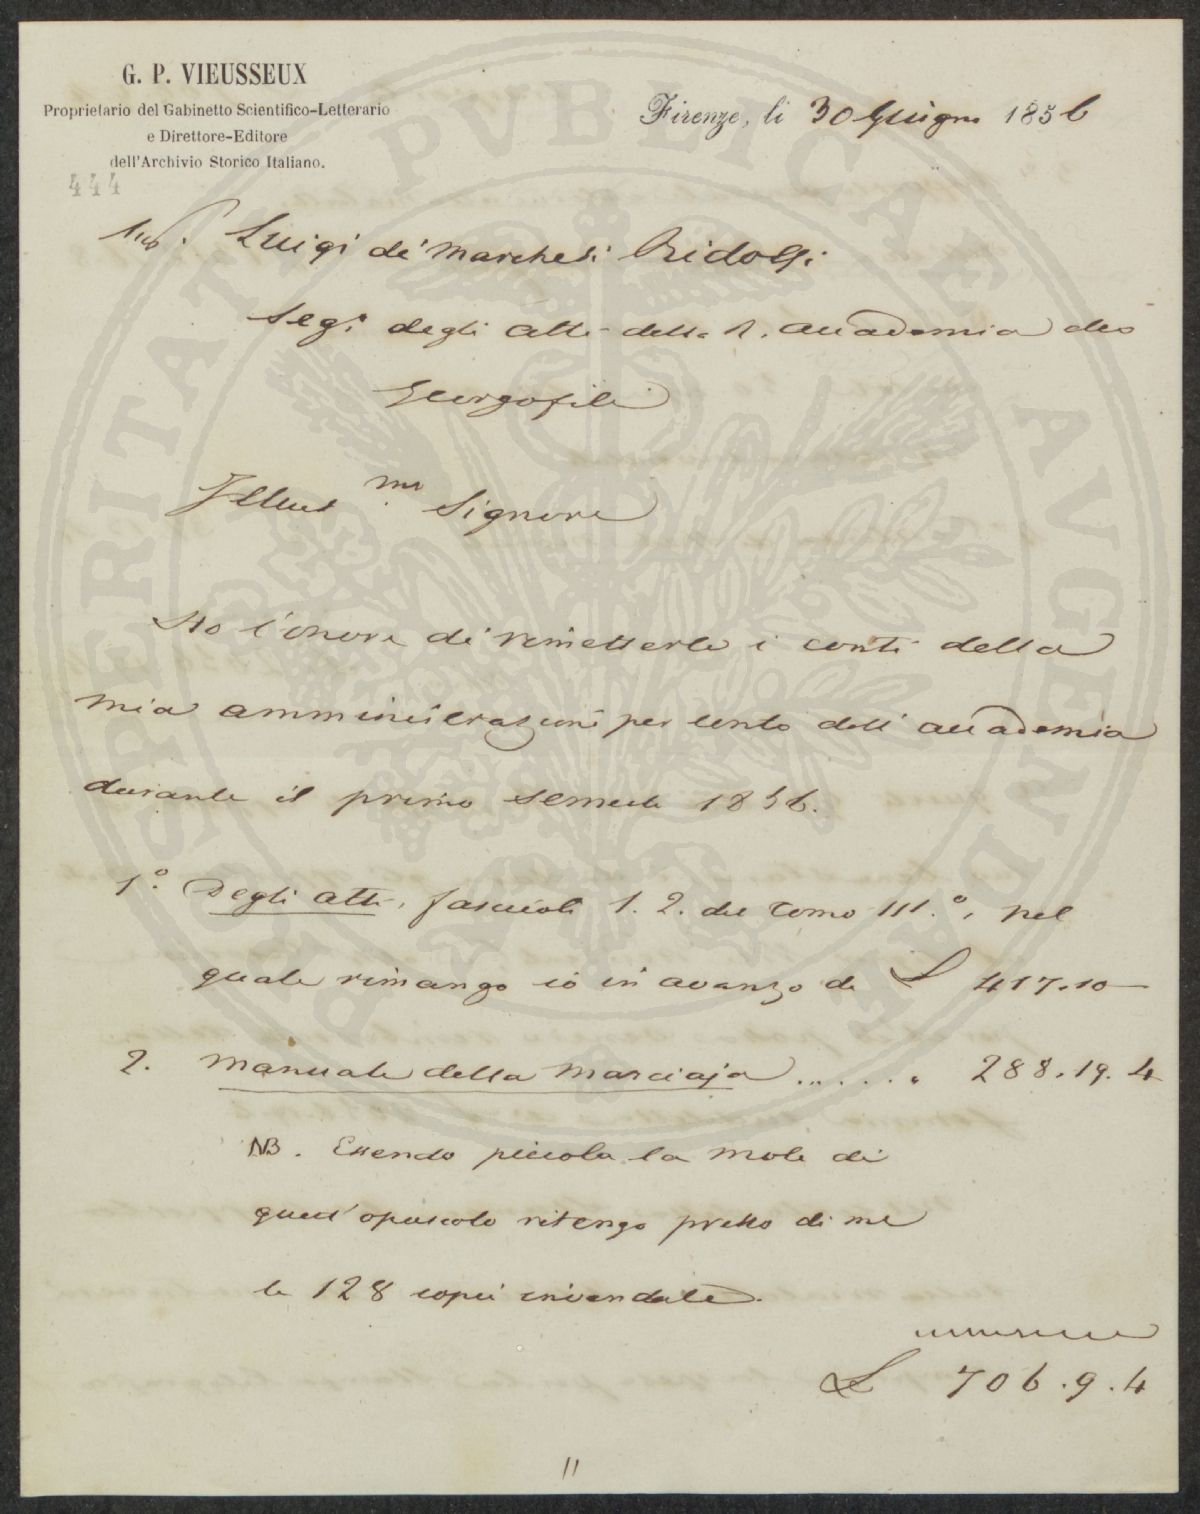 G. P. VIEUSSEUX
Proprietario del Gabinetto Scientifico-Letterario
e Direttore-Editore
dell'Archivio Storico Italiano.
444
Firenze, li 30 Giugno 1856
Luigi de' Marchesi Ridolfi
Segr degli Atti della R. Accademia dei
Georgofili
Illust mo Signore
Ho l'onore di rimetterle i conti della
mia amministrazione per conto dell'accademia
durante il primo semestre 1856.
1.° Degli Atti, fascicoli 1. 2. del Tomo III.°, nel
quale rimango io in avanzo di L 417.10 —
2. Manuale della Marciaja ...... 288.19.4
NB. Essendo piccola la mole di
quest'opuscolo ritengo presso di me
le 128 copie invendute.
L 706.9.4
11
PROSPERITATI PVBLICAE AVGENDAE